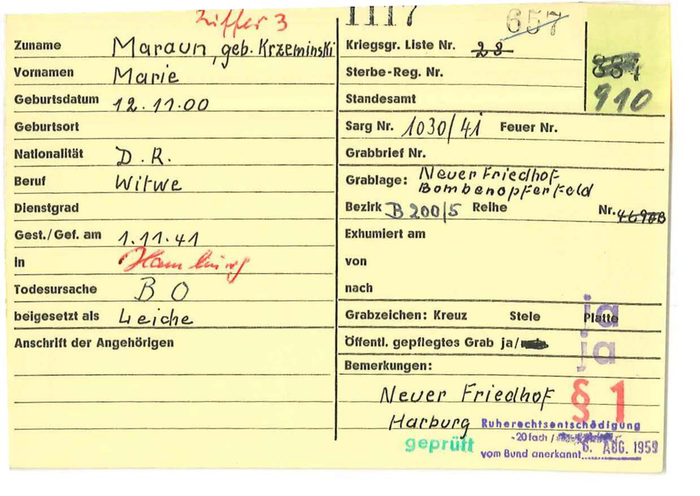 Ziffer 3
1117
657
Zuname Maraun, geb. Krzeminski
Vornamen Marie
Geburtsdatum 12.11.00
Geburtsort
Nationalität D.R.
Beruf Witwe
Dienstgrad
Gest./Gef. am 1.11.41
in Hamburg
Todesursache BO
beigesetzt als Leiche
Anschrift der Angehörigen
Kriegsgr. Liste Nr. 28
Sterbe-Reg. Nr.
910
Standesamt
Sarg Nr. 1030/41 Feuer Nr.
Grabbrief Nr.
Grablage: Neuer Friedhof
Bombenopferfeld
Bezirk B 200/5 Reihe Nr.
Exhumiert am
von
nach
Grabzeichen: Kreuz Stele Platte ja
Öffentl. gepflegtes Grab ja/ ja
Bemerkungen:
Neuer Friedhof
Harburg
§ 1
Ruherechtsentschädigung
-20fach /
vom Bund anerkannt 6. AUG. 1959
geprüft